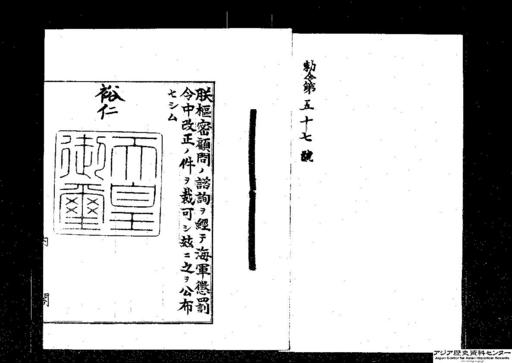 勅令第五十七號
朕樞密顧問ノ諮詢ヲ經テ海軍懲罰
令中改正ノ件ヲ裁可シ茲ニ之ヲ公布
セシム
裕仁
天皇
御璽
内閣
アジア歴史資料センター
Japan Center for Asian Historical Records